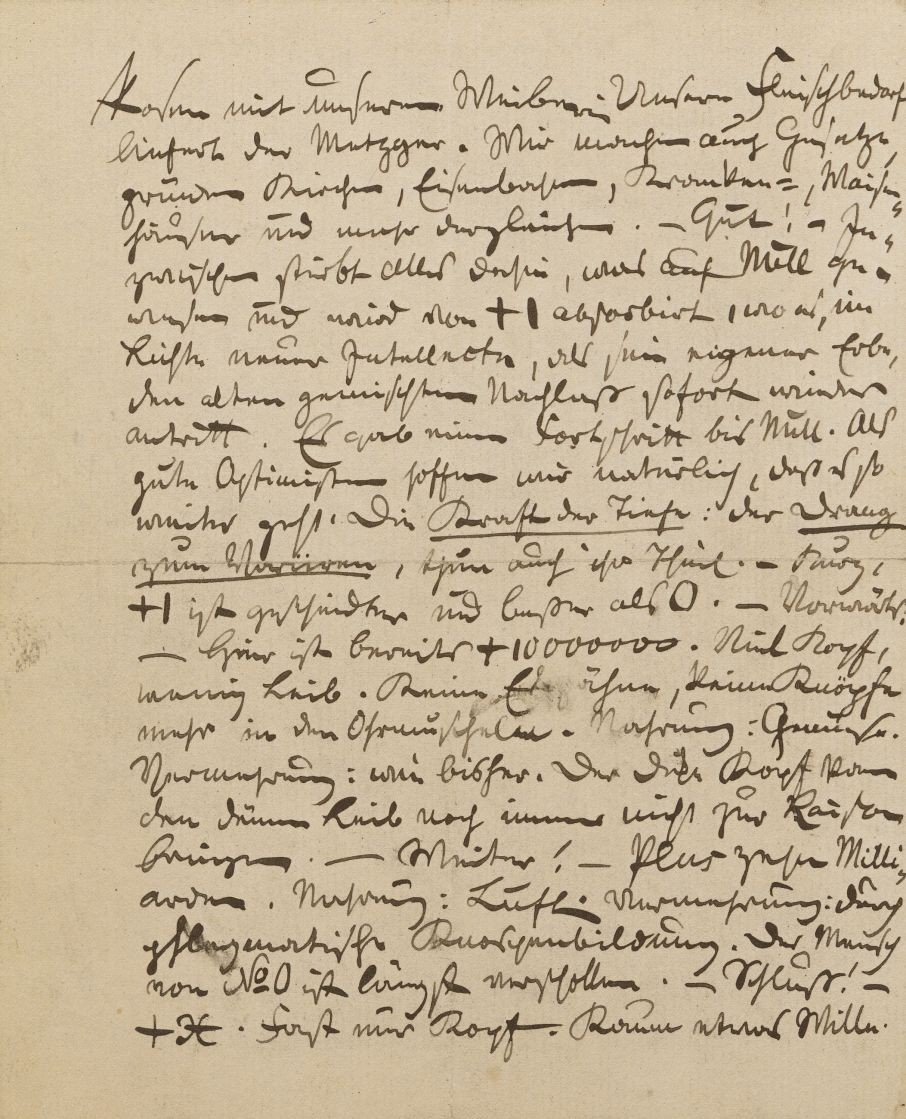 Kosen mit unseren Weibern. Unsern Fleischbedarf
liefert der Metzger. Wir machen auch Gesetze,
gründen Kirchen, Eisenbahnen, Kranken=, Waisen"
häuser und mehr dergleichen. – Gut! – In"
zwischen stirbt Alles dahin, was auf Null ge-
wesen und wird von +1 absorbirt, wo es, im
Lichte neuer Intellecte, als sein eigener Erbe,
den alten gemischten Nachlaß sofort wieder
antritt. Es gab einen Fortschritt bis Null. Als
gute Optimisten hoffen wir natürlich, daß es so
weiter geht. Die Kraft der Tiefe: der Drang
zum Variiren, thun auch ihr Theil. – Kurz,
+1 ist gescheidter und besser als 0. – Vorwärts!
– Hier ist bereits +10000000. Viel Kopf,
wenig Leib. Keine , keine Knöpfe
mehr in den Ohrmuscheln. Nahrung: Gemüse.
Vermehrung: wie bisher. Der dicke Kopf kann
den dünnen Leib noch immer nicht zur Raison
bringen. – Weiter! – Plus zehn Milli-
arden. Nahrung: Luft. Vermehrung: durch
phlegmatische Knospenbildung. Der Mensch
von No 0 ist längst verschollen. – Schluß! –
+X. Fast nur Kopf. Kaum etwas Wille.